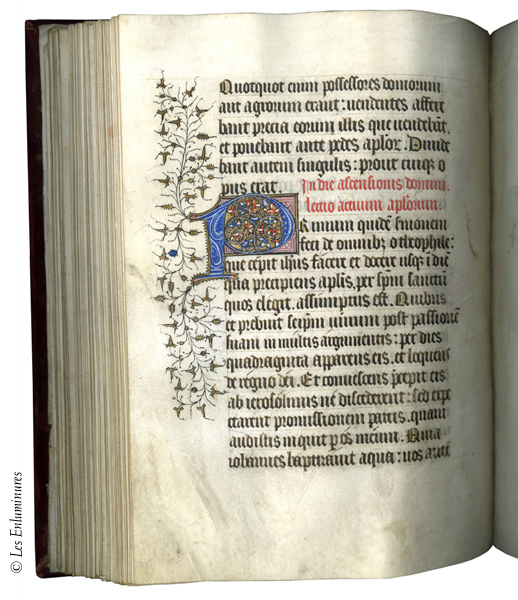 Quotquot enim possessores domorum
aut agrorum erant: uendentes affere
bant precia eorum illis que uendebāt,
et ponebant ante pedes aplor̄. Diuide
bant autem singulis: prout cuiqꝫ o
pus erat. In die ascensionis domini.
lectio actuum aplorum.
PRimum quidē sermonem
feci de omnibꝫ o theophile:
que cepit ihūs facere et docere usqꝫ ī diē
qua precipiens aplīs, per spm̄ sanctū
quos elegit, assumptus est. Quibus
et prebuit seipm̄ uiuum post passionē
suam in multis argumentis: per dies
quadraginta apparens eis, et loquens
de regno dei. Et conuescens p̄cepit eis
ab ierosolimis ne discederent: sed expe
ctarent promissionem patris, quam
audistis inquit p̄ os meum. Quia
iohannes baptizauit aqua: uos autē
© Les Enluminures